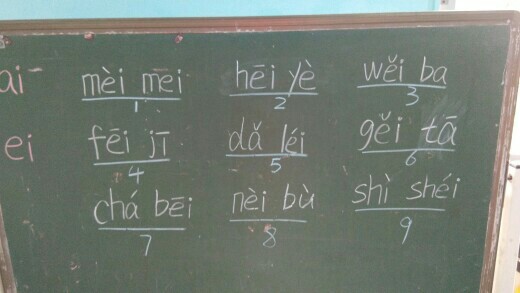 ai mèi mei hēi yè wěi ba
1 2 3
ei fēi jī dǎ léi gěi tā
4 5 6
chá bēi nèi bù shì shéi
7 8 9